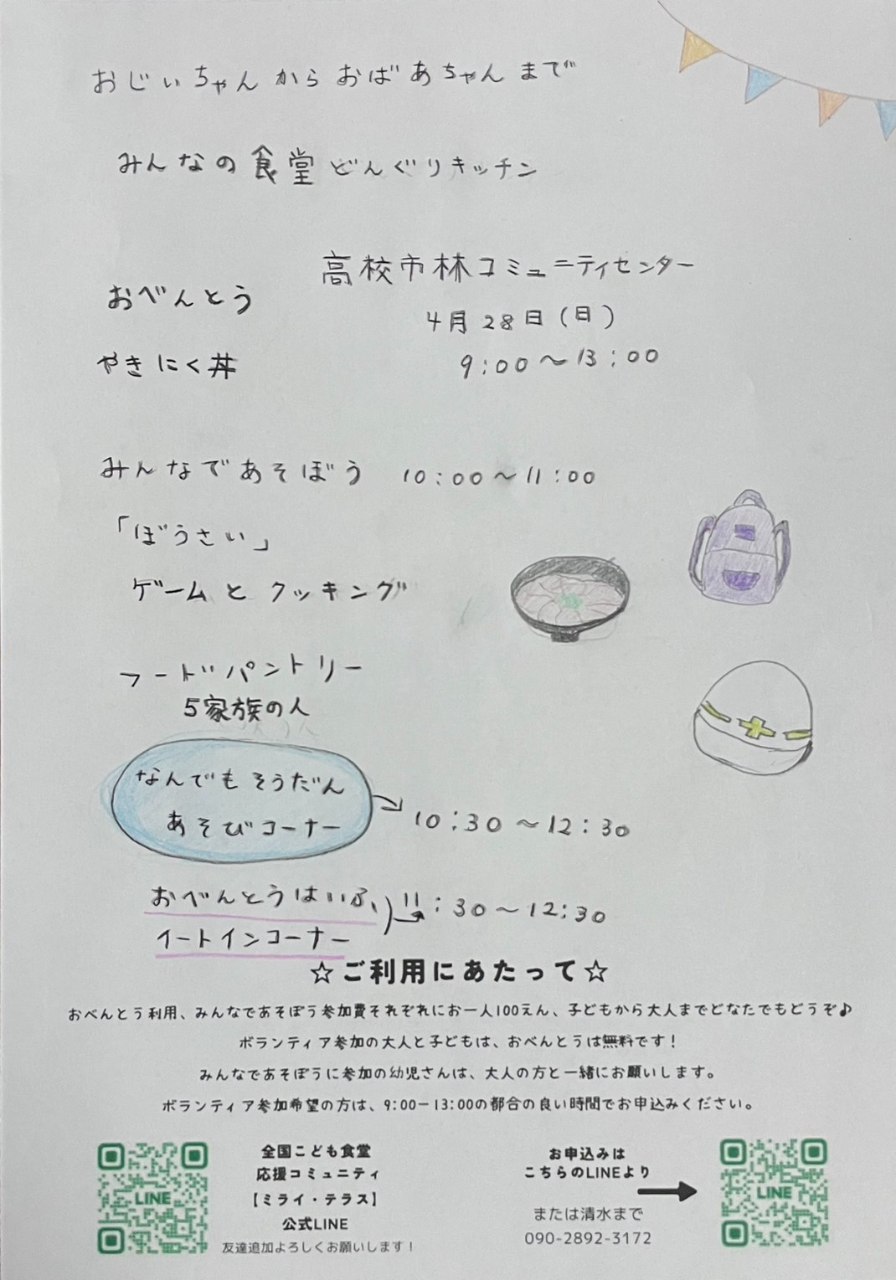 おじいちゃんからおばあちゃんまで
みんなの食堂どんぐりキッチン
高校市林コミュニティセンター
4月28日(日)
9:00～13:00
おべんとう
やきにく丼
みんなであそぼう 10:00～11:00
「ぼうさい」
ゲームとクッキング
フードパントリー
5家族の人
なんでもそうだん
あそびコーナー
10:30～12:30
おべんとうはいふ、
イートインコーナー
11:30～12:30
☆ご利用にあたって☆
おべんとう利用、みんなであそぼう参加費それぞれにお一人100えん、子どもから大人までどなたでもどうぞ♪
ボランティア参加の大人と子どもは、おべんとうは無料です！
みんなであそぼうに参加の幼児さんは、大人の方と一緒にお願いします。
ボランティア参加希望の方は、9:00ー13:00の都合の良い時間でお申込みください。
LINE
全国こども食堂
応援コミュニティ
【ミライ・テラス】
公式LINE
友達追加よろしくお願いします！
お申込みは
こちらのLINEより
または清水まで
090-2892-3172
LINE